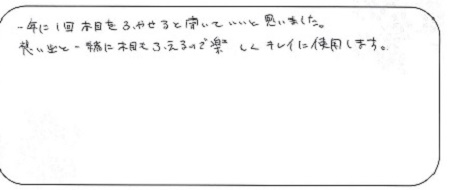 一年に1回本目をふやせると聞いていいと思いました。
想い出と一緒に本目もふえるので楽しんキレイに使用します。